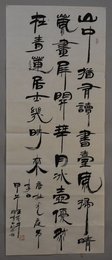 山中猶有讀書臺風掃晴
嵐畫屏開華月冰壺依舊
在青蓮居士幾時來